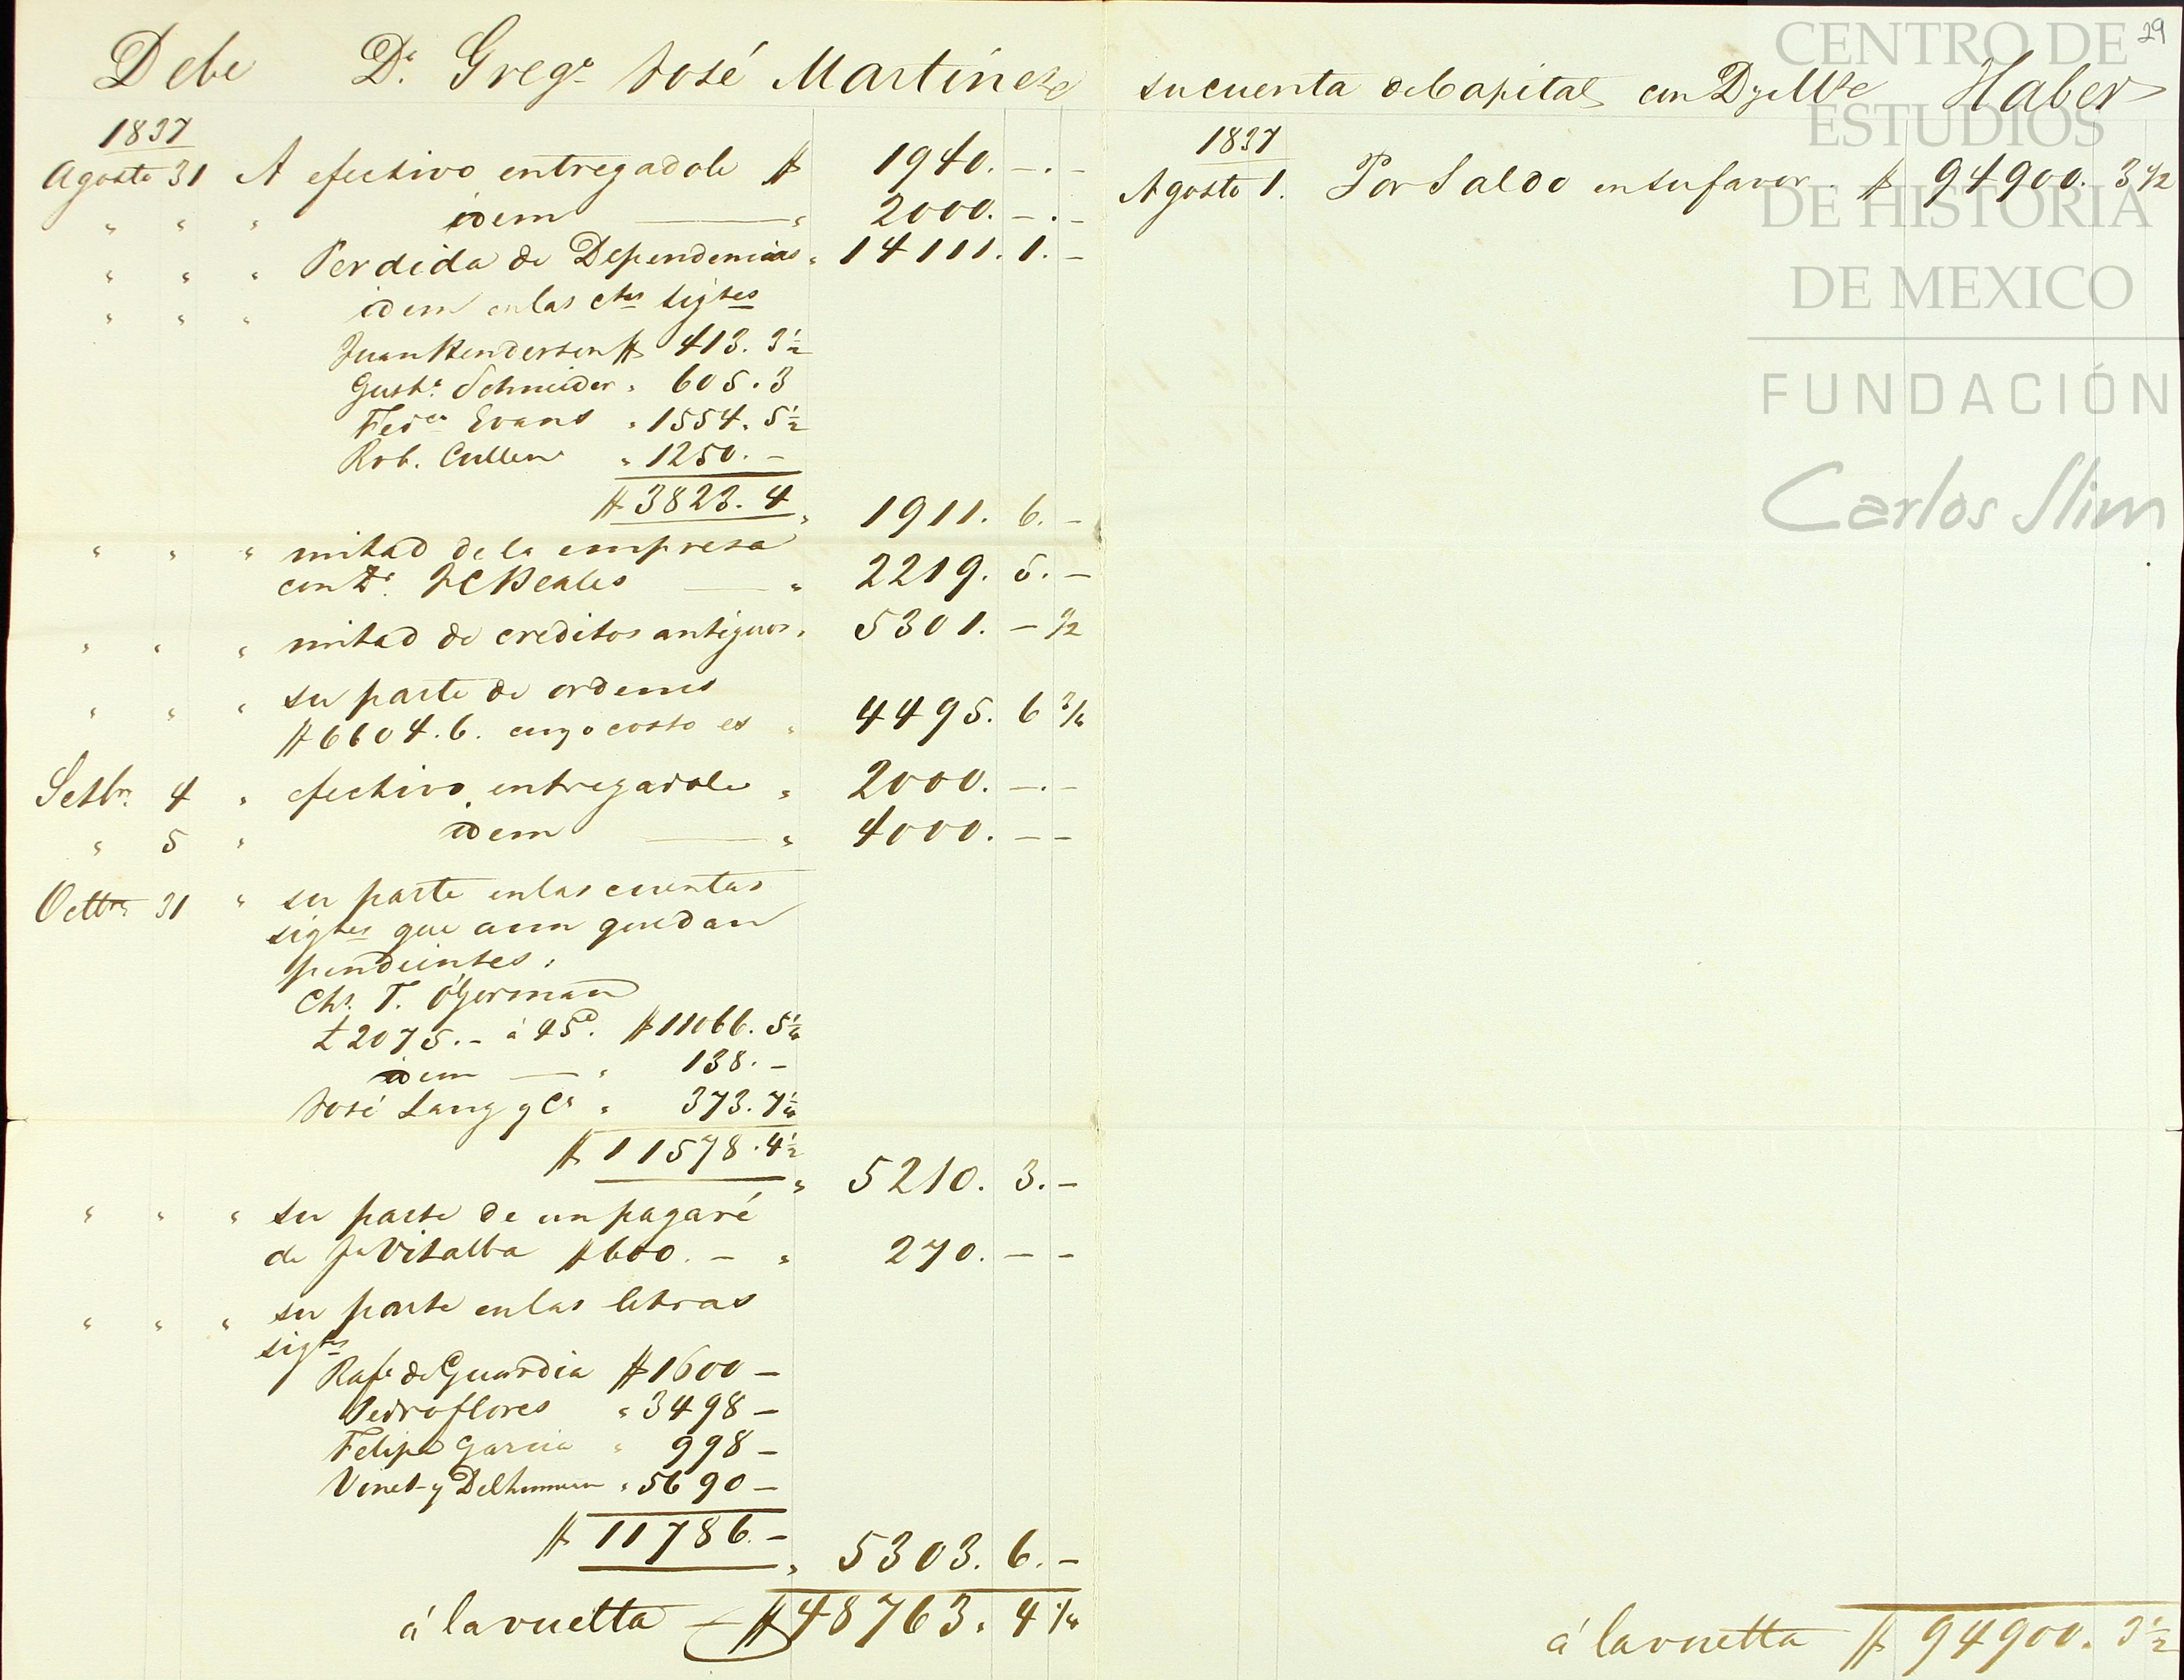 Debe Dn. Grego José Martinez
1837
Agosto 31 A efectivo entregadole $ 1940. -. -
" " " idem " 2000. -. -
" " " Perdida de Dependencias " 14111. 1. -
" " " idem en las ctas sigtes
Juan Henderson $ 413. 3½
Gusto. Schneider " 605. 3
Fedco Evans " 1554. 5½
Rob. Cullen " 1250. -
$ 3823. 4 " 1911. 6. -
" " " mitad de la empresa
con Dn. JC Beales " 2219. 5. -
" " " mitad de creditos antiguos " 5301. - ½
" " " su parte de ordenes
$ 6604. 6. cuyo costo es " 4495. 6 ¾
Setbre. 4 " efectivo entregadole " 2000. -. -
" 5 " idem " 4000. - -
Octbre 31 " su parte en las cuentas
sigtes que aun quedan
pendientes.
Chs. T. O'Gorman
£ 2075. - á 45d. $ 11066. 5¼
idem " 138. -
José Lang y Ca " 373. 7¼
$ 11578. 4½ " 5210. 3. -
" " " su parte de un pagaré
de Jn Vitalba $ 600. - " 270. - -
" " " su parte en las letras
sigtes
Rafl de Guardia $ 1600 -
Pedro flores " 3498 -
Felipe Garcia " 998 -
Vinet y " 5690 -
$ 11786. - " 5303. 6. -
á la vuelta $ 48763. 4 ¼
su cuenta de Capital con D y Mte Haber
1837
Agosto 1. Por Saldo en su favor. $ 94900. 3½
á la vuelta $ 94900. 3½
29
CENTRO DE
ESTUDIOS
DE HISTORIA
DE MEXICO
FUNDACIÓN
Carlos Slim